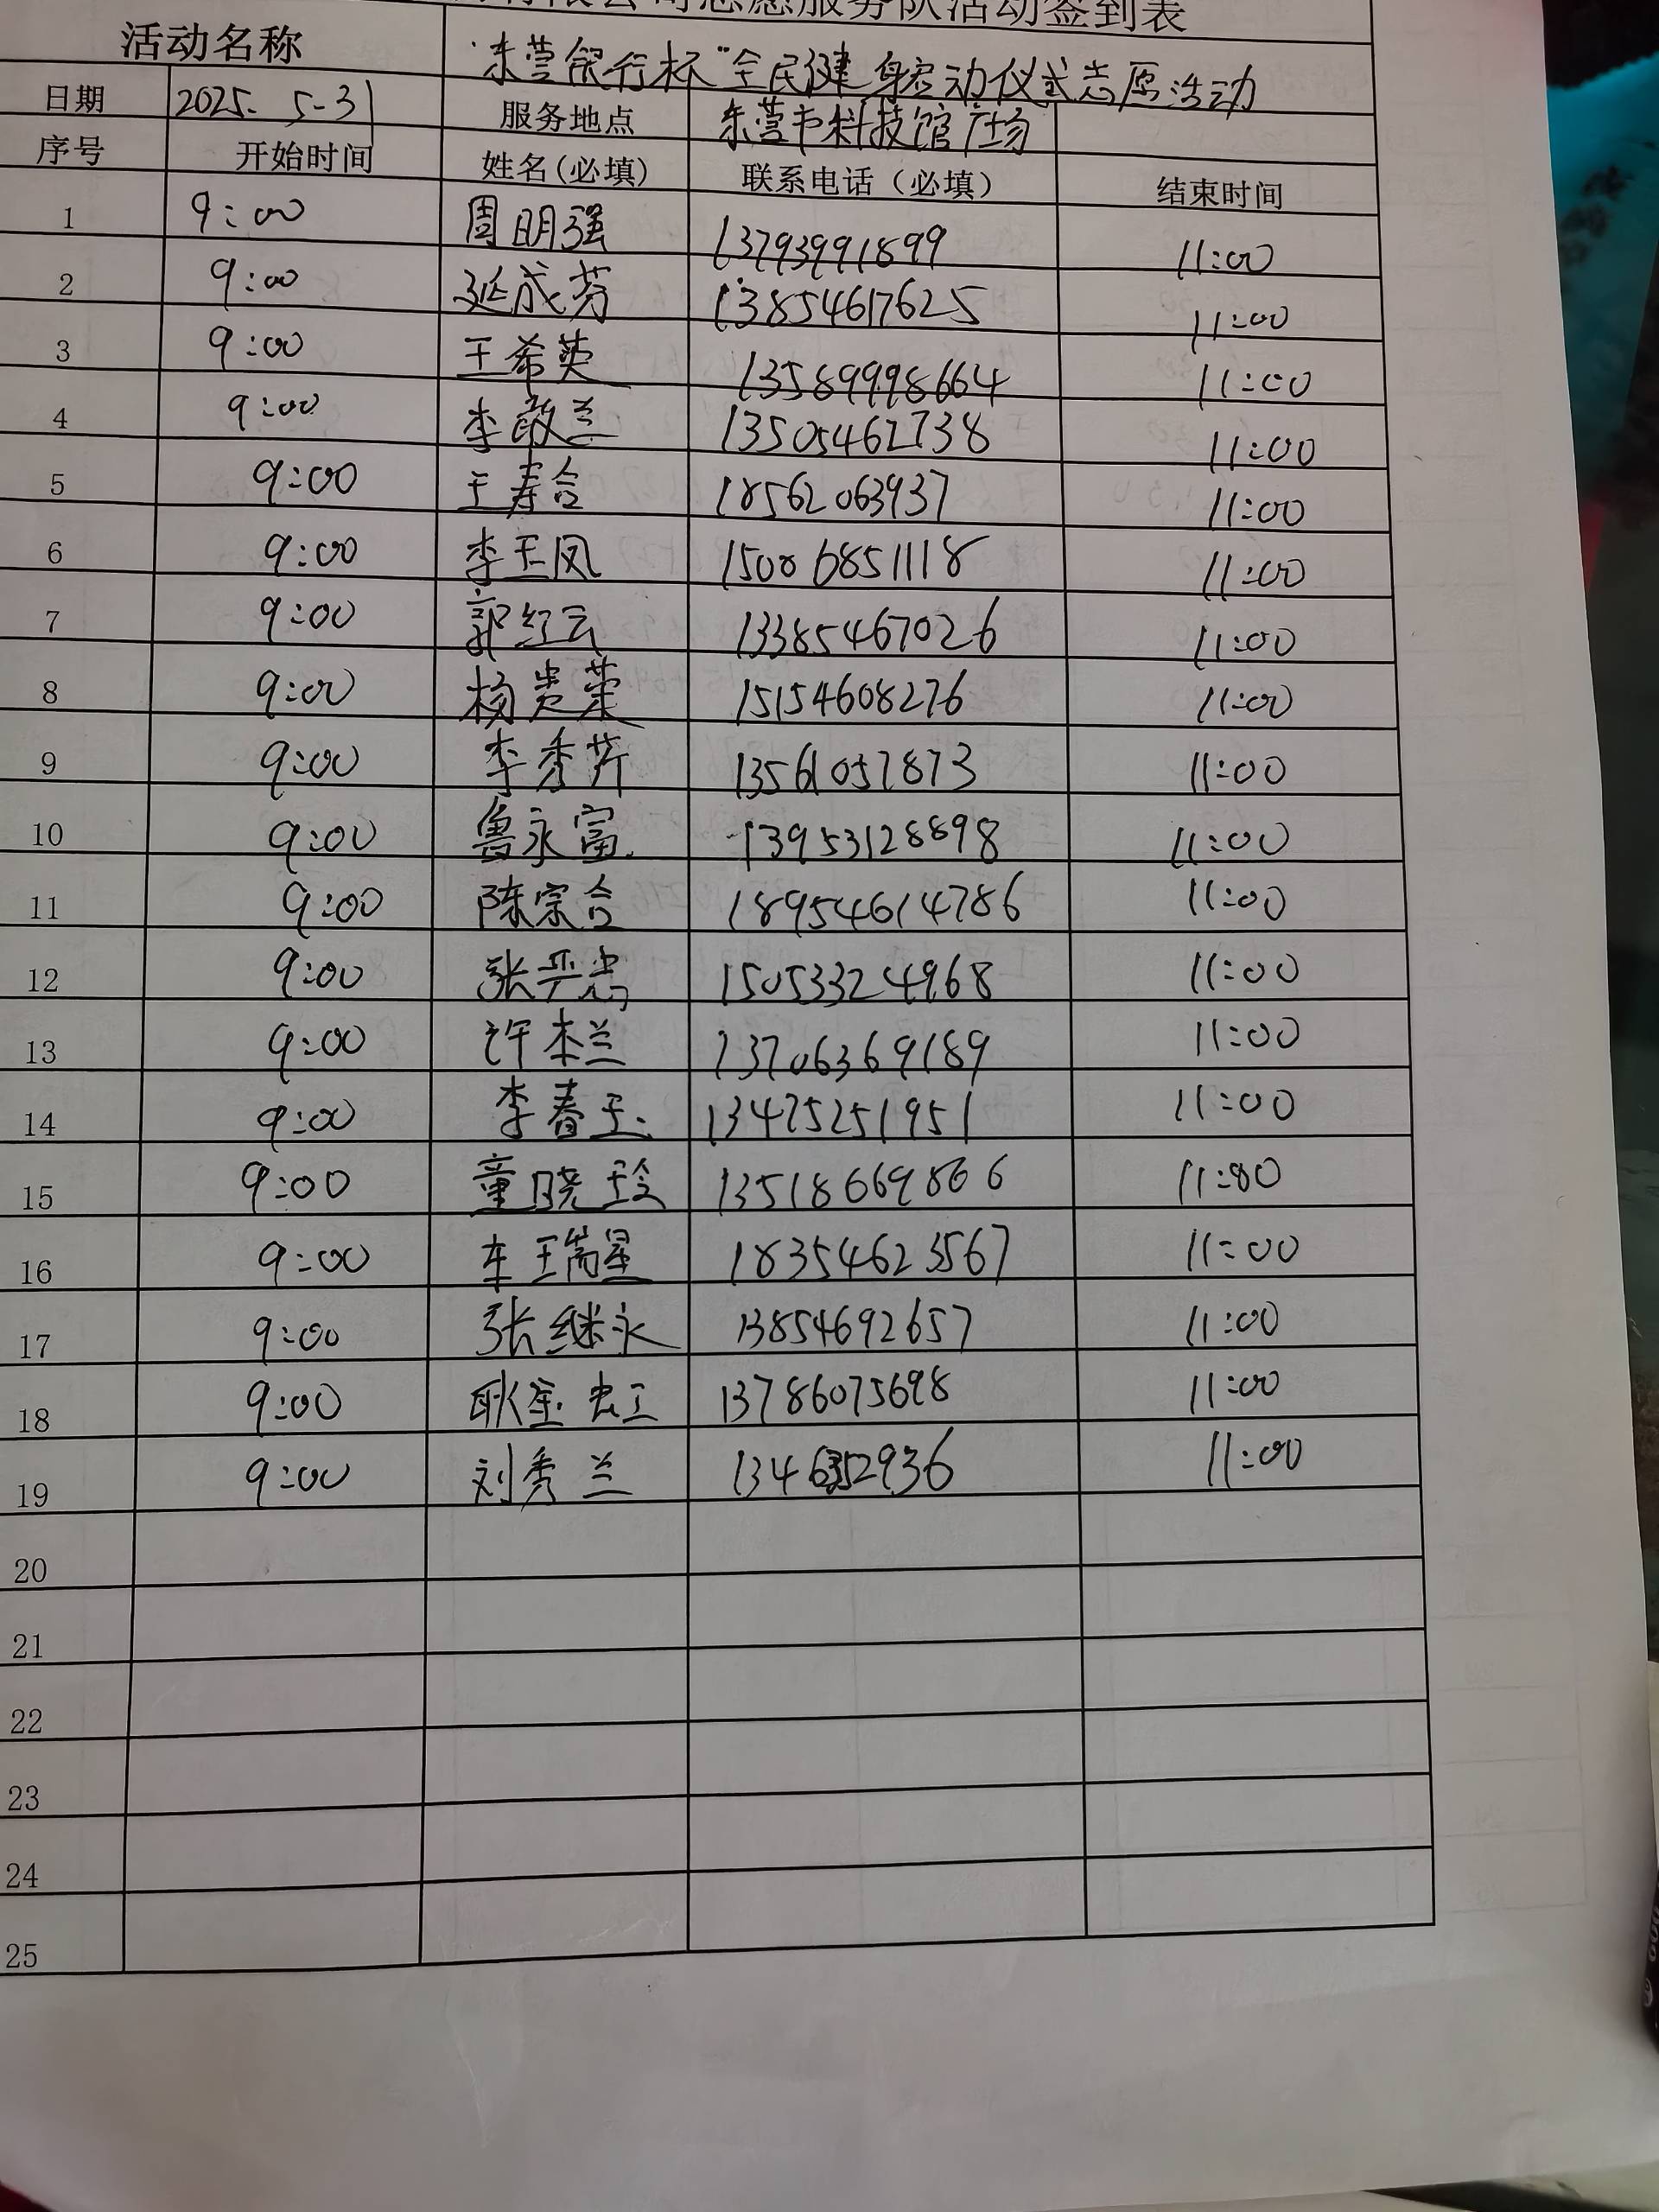 有限公司志愿服务队活动签到表
活动名称 "东营银行杯"全民健身启动仪式志愿活动
日期 2025. 5-31 服务地点 东营市科技馆广场
序号 开始时间 姓名(必填) 联系电话（必填） 结束时间
1 9:00 周明强 13793991899 11:00
2 9:00 延成芳 13854617625 11:00
3 9:00 王希英 13589998664 11:00
4 9:00 李敢兰 13505462738 11:00
5 9:00 王寿合 18562063937 11:00
6 9:00 李玉凤 15006851118 11:00
7 9:00 郭红云 13385467026 11:00
8 9:00 杨贵荣 15154608276 11:00
9 9:00 李秀芹 13561057873 11:00
10 9:00 鲁永富 13953128898 11:00
11 9:00 陈宗合 18954614786 11:00
12 9:00 张严忠 15053324968 11:00
13 9:00 许本兰 13706369189 11:00
14 9:00 李春玉 13475251951 11:00
15 9:00 童晓玲 13518669866 11:00
16 9:00 车瑞星 18354623567 11:00
17 9:00 张继永 13854692657 11:00
18 9:00 耿金虹 13786075698 11:00
19 9:00 刘秀兰 11:00
20
21
22
23
24
25